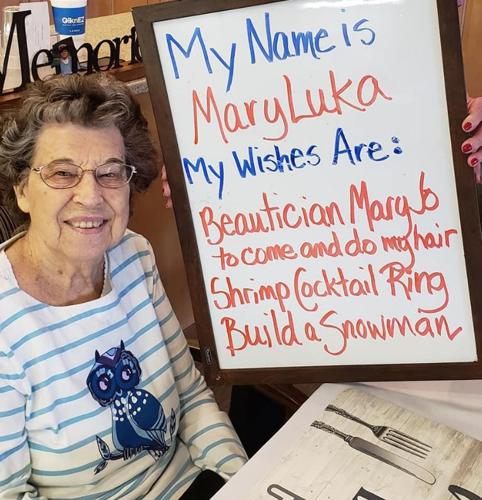 Memories
My Name is
Mary Luka
My Wishes Are:
Beautician Mary Jo
to come and do my hair
Shrimp Cocktail Ring
Build a Snowman